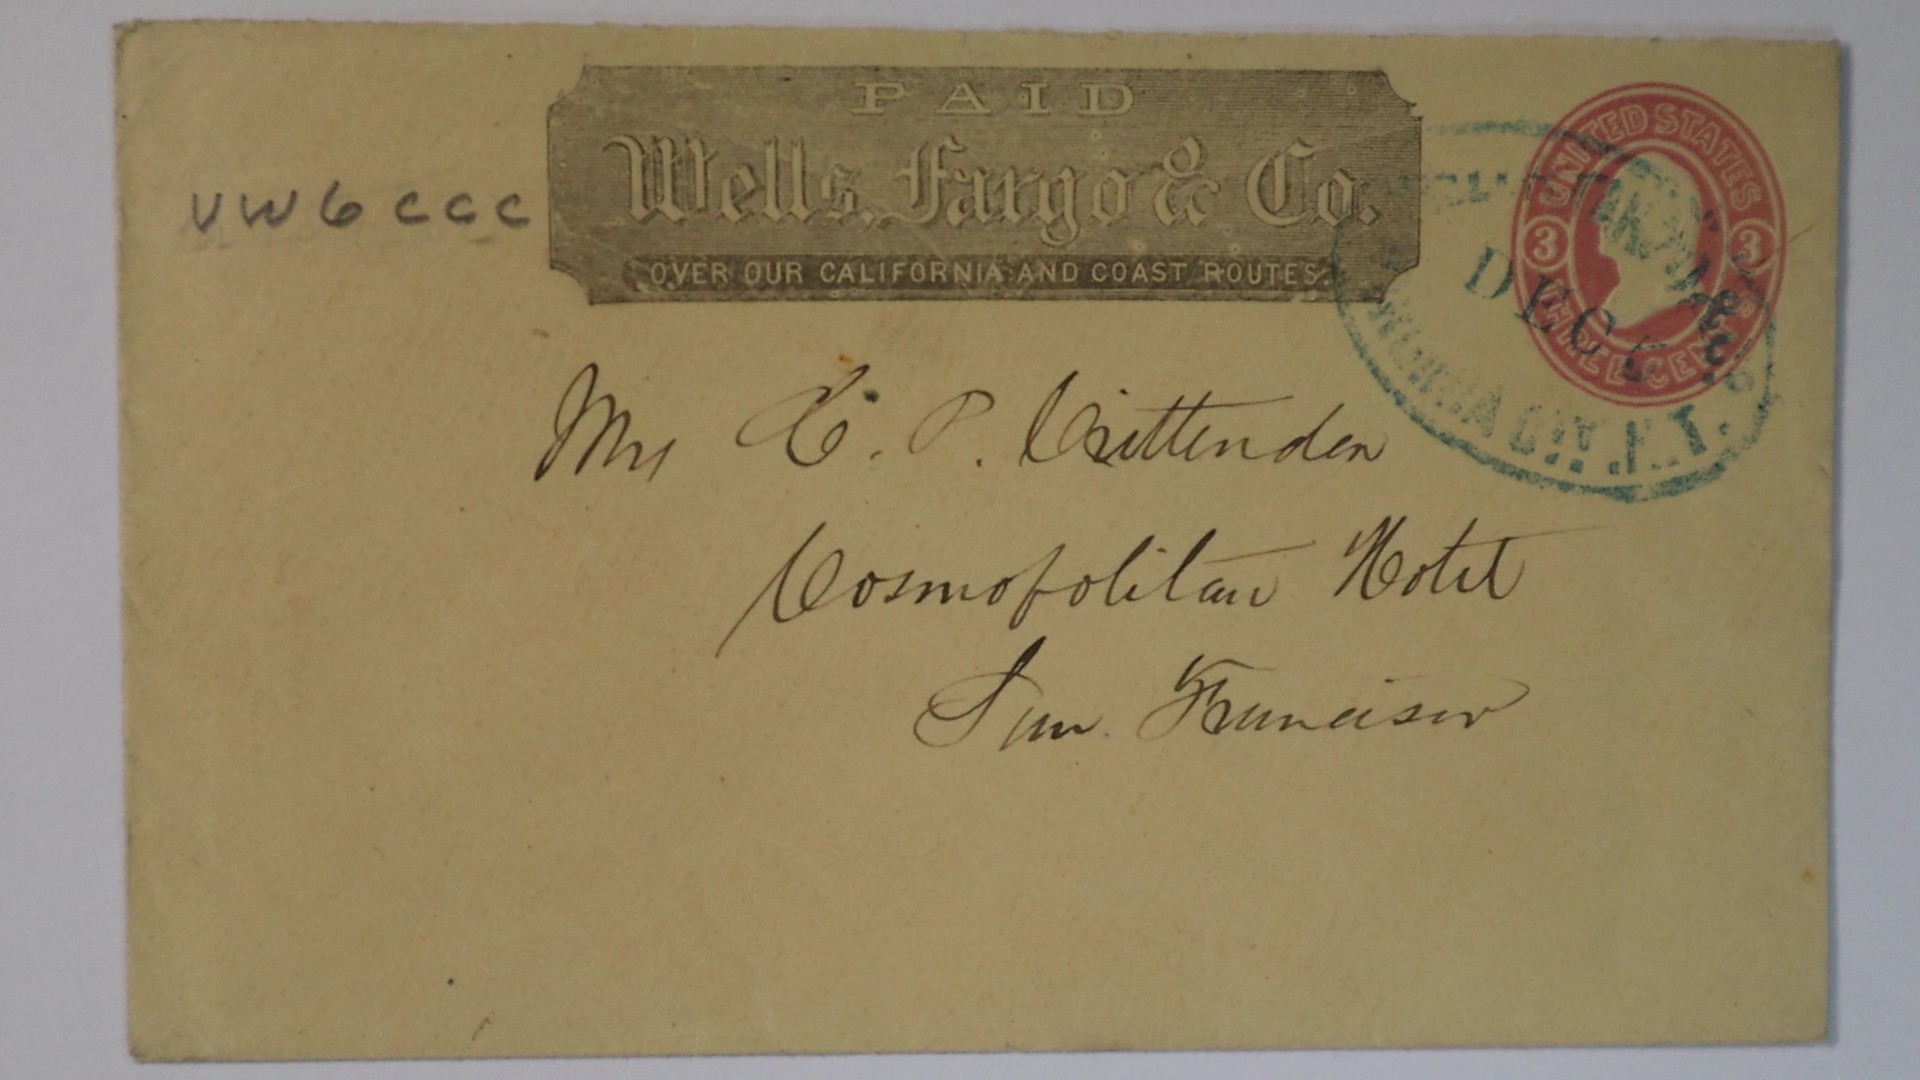 PAID
Wells, Fargo & Co.
OVER OUR CALIFORNIA AND COAST ROUTES.
UNITED STATES
3 3
THREE CENTS
DEC 5
VIRGINIA CITY N.T.
VW6 CCC
Mrs P. Crittenden
Cosmopolitan Hotel
San Francisco